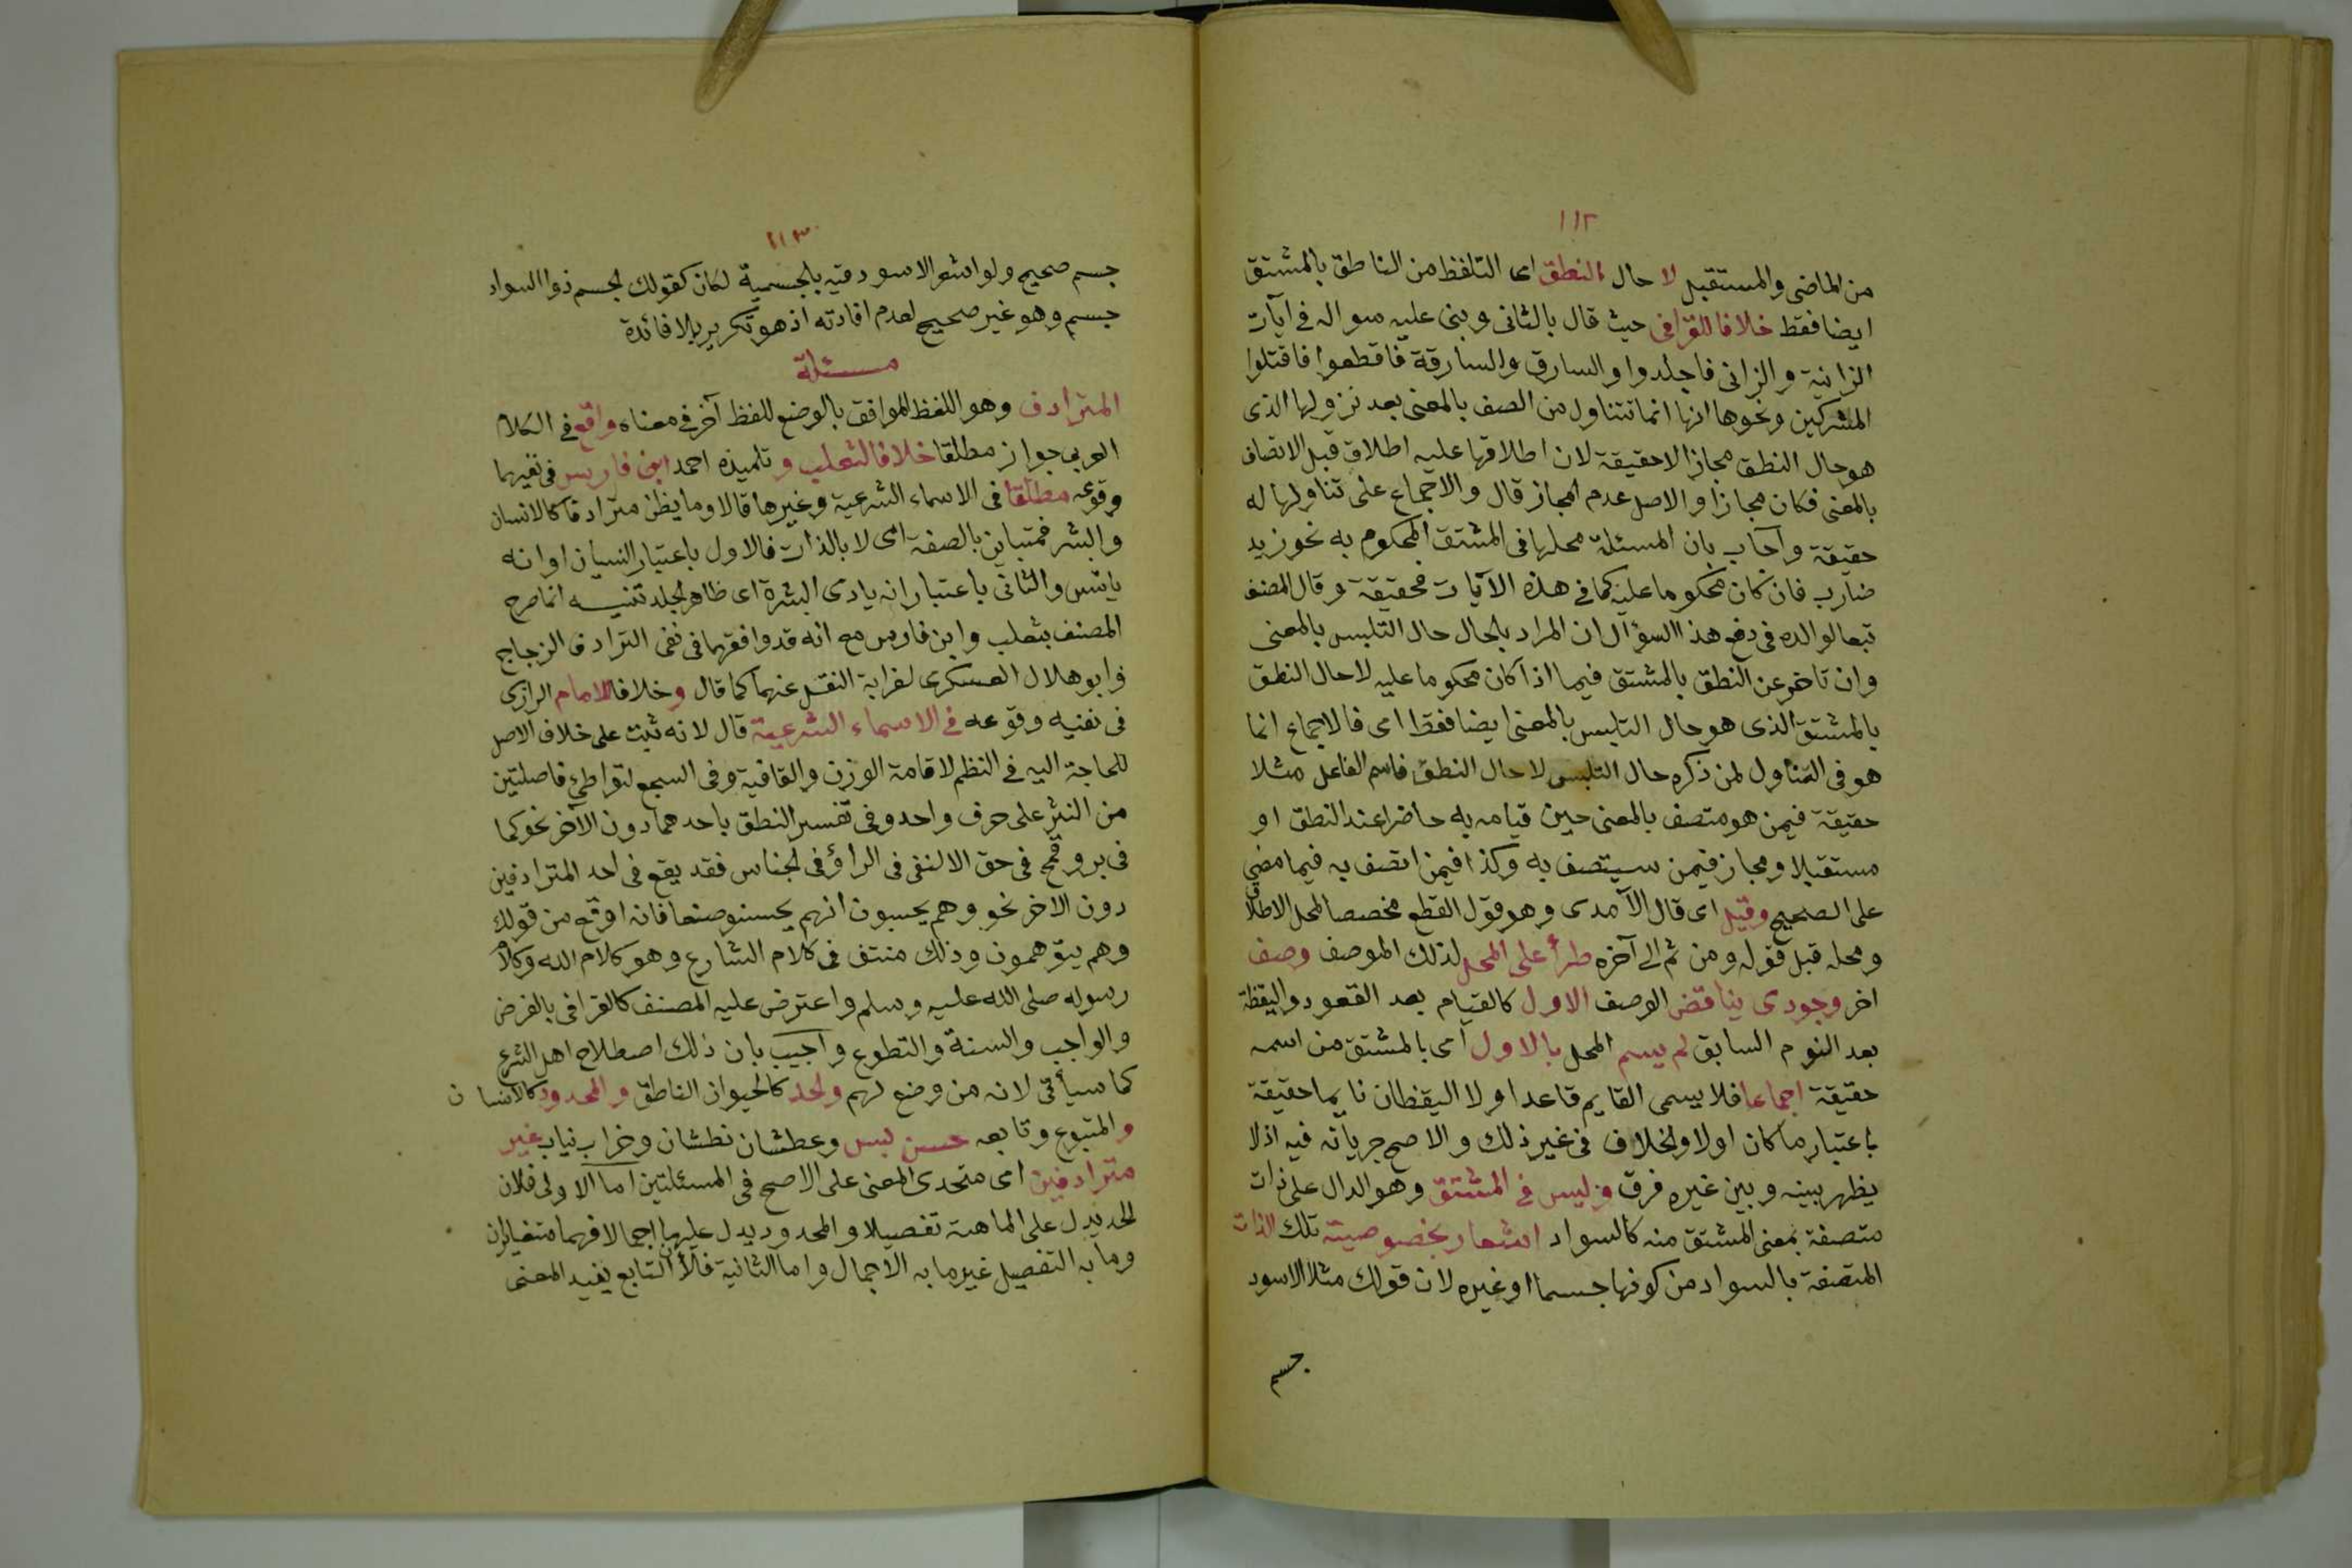 ١١٢
من الماضى والمستقبل لا حال النطق اى التلفظ من الناطق بالمشتق
ايضا فقط خلافا للقرافى حيث قال بالثانى وبنى عليه سواله فى آيات
الزانية والزانى فاجلدوا والسارق والسارقة فاقطعوا فاقتلوا
المشركين ونحوها انها انما تتناول من الصف بالمعنى بعد نزولها الذى
هو حال النطق مجازا لا حقيقة لان اطلاقها عليه اطلاق قبل الاتصاف
بالمعنى فكان مجازا والاصل عدم المجاز قال والاجماع على تناولها له
حقيقة وآجاب بان المسئلة محلها فى المشتق المحكوم به نحو زيد
ضارب فان كان محكوما عليه كما فى هذه الآيات فحقيقة وقال المصنف
تبعا لوالده فى دفع هذا السؤال ان المراد بالحال حال التلبس بالمعنى
وان تاخر عن النطق بالمشتق فيما اذا كان محكوما عليه لا حال النطق
بالمشتق الذى هو حال التلبس بالمعنى ايضا فقط اى فالاجماع انما
هو فى التناول لمن ذكره حال التلبس لا حال النطق فاسم الفاعل مثلا
حقيقة فيمن هو متصف بالمعنى حين قيامه به حاضرا عند النطق او
مستقبلا ومجاز فيمن سيتصف به وكذا فيمن اتصف به فيما مضى
على الصحيح وقيل اى قال الآمدى وهو قول القطع مخصصا لمحل الاطلاق
ومحله قبل قوله ومن ثم الى آخره طرأ على المحل لذلك الموصف وصف
اخر وجودى يناقض الوصف الاول كالقيام بعد القعود واليقظة
بعد النوم السابق لم يسم المحل بالاول اى بالمشتق من اسمه
حقيقة اجماعا فلا يسمى القايم قاعدا ولا اليقظان نايما حقيقة
باعتبار ما كان اولا والخلاف فى غير ذلك والاصح جريانه فيه اذ لا
يظهر بينه وبين غيره فرق وليس فى المشتق وهو الدال على ذات
متصفة بمعنى المشتق منه كالسواد اشعار بخصوصيتة تلك الذات
المتصفة بالسواد من كونها جسما او غيره لان قولك مثلا الاسود
جسم
١١٣
جسم صحيح ولو اشعر الاسود فيه بالجسمية لكان كقولك لجسم ذو السواد
جسم وهو غير صحيح لعدم افادته اذ هو تكرير بلا فائدة
مسئلة
المترادف وهو اللفظ الموافق بالوضع للفظ آخر فى معناه واقع فى الكلام
العربى جوازا مطلقا خلافا لثعلب وتلميذه احمد ابن فاريس فى نفيهما
وقوعه مطلقا فى الاسماء الشرعية وغيرها قالا وما يظن مترادفا كالانسان
والبشر فمتباين بالصفة اى لا بالذات فالاول باعتبار النسيان او انه
يانس والثانى باعتبار انه بادى البشرة اى ظاهر الجلد تنبيه انما صرح
المصنف بثعلب وابن فارس مع انه قد وافقهما فى نفى الترادف الزجاج
وابو هلال العسكرى لغرابة النقل عنهما كما قال وخلافا للامام الرازى
فى نفيه وقوعه فى الاسماء الشرعية قال لانه ثبت على خلاف الاصل
للحاجة اليه فى النظم لاقامة الوزن والقافية وفى السجع لتواطئ فاصلتين
من النثر على حرف واحد وفى تفسير النطق باحدهما دون الآخر نحو كما
فى بر وقمح فى حق الالثغ فى الراؤ فى لجناس فقد يقع فى احد المترادفين
دون الاخر نحو وهم يحسبون انهم يحسنو صنعا فانه اوقع من قولك
وهم يتوهمون وذلك منتف فى كلام الشارع وهو كلام الله وكلام
رسوله صلى الله عليه وسلم واعترض عليه المصنف كالقرافى بالفرض
والواجب والسنة والتطوع وآجيب بان ذلك اصطلاح اهل الشرع
كما سيأتى لانه من وضع لهم ولحد كالحيوان الناطق والمحدود كالانسان
والمتبوع وتابعه حسن بسن وعطشان نطشان وخراب نياب غير
مترادفين اى متحدى المعنى على الاصح فى المسئلتين اما الاولى فلان
لحد يدل على الماهية تفصيلا والمحدود يدل عليها اجمالا فهما متغايران
وما به التفصيل غير ما به الاجمال واما الثانية فلأن التابع يفيد المعنى